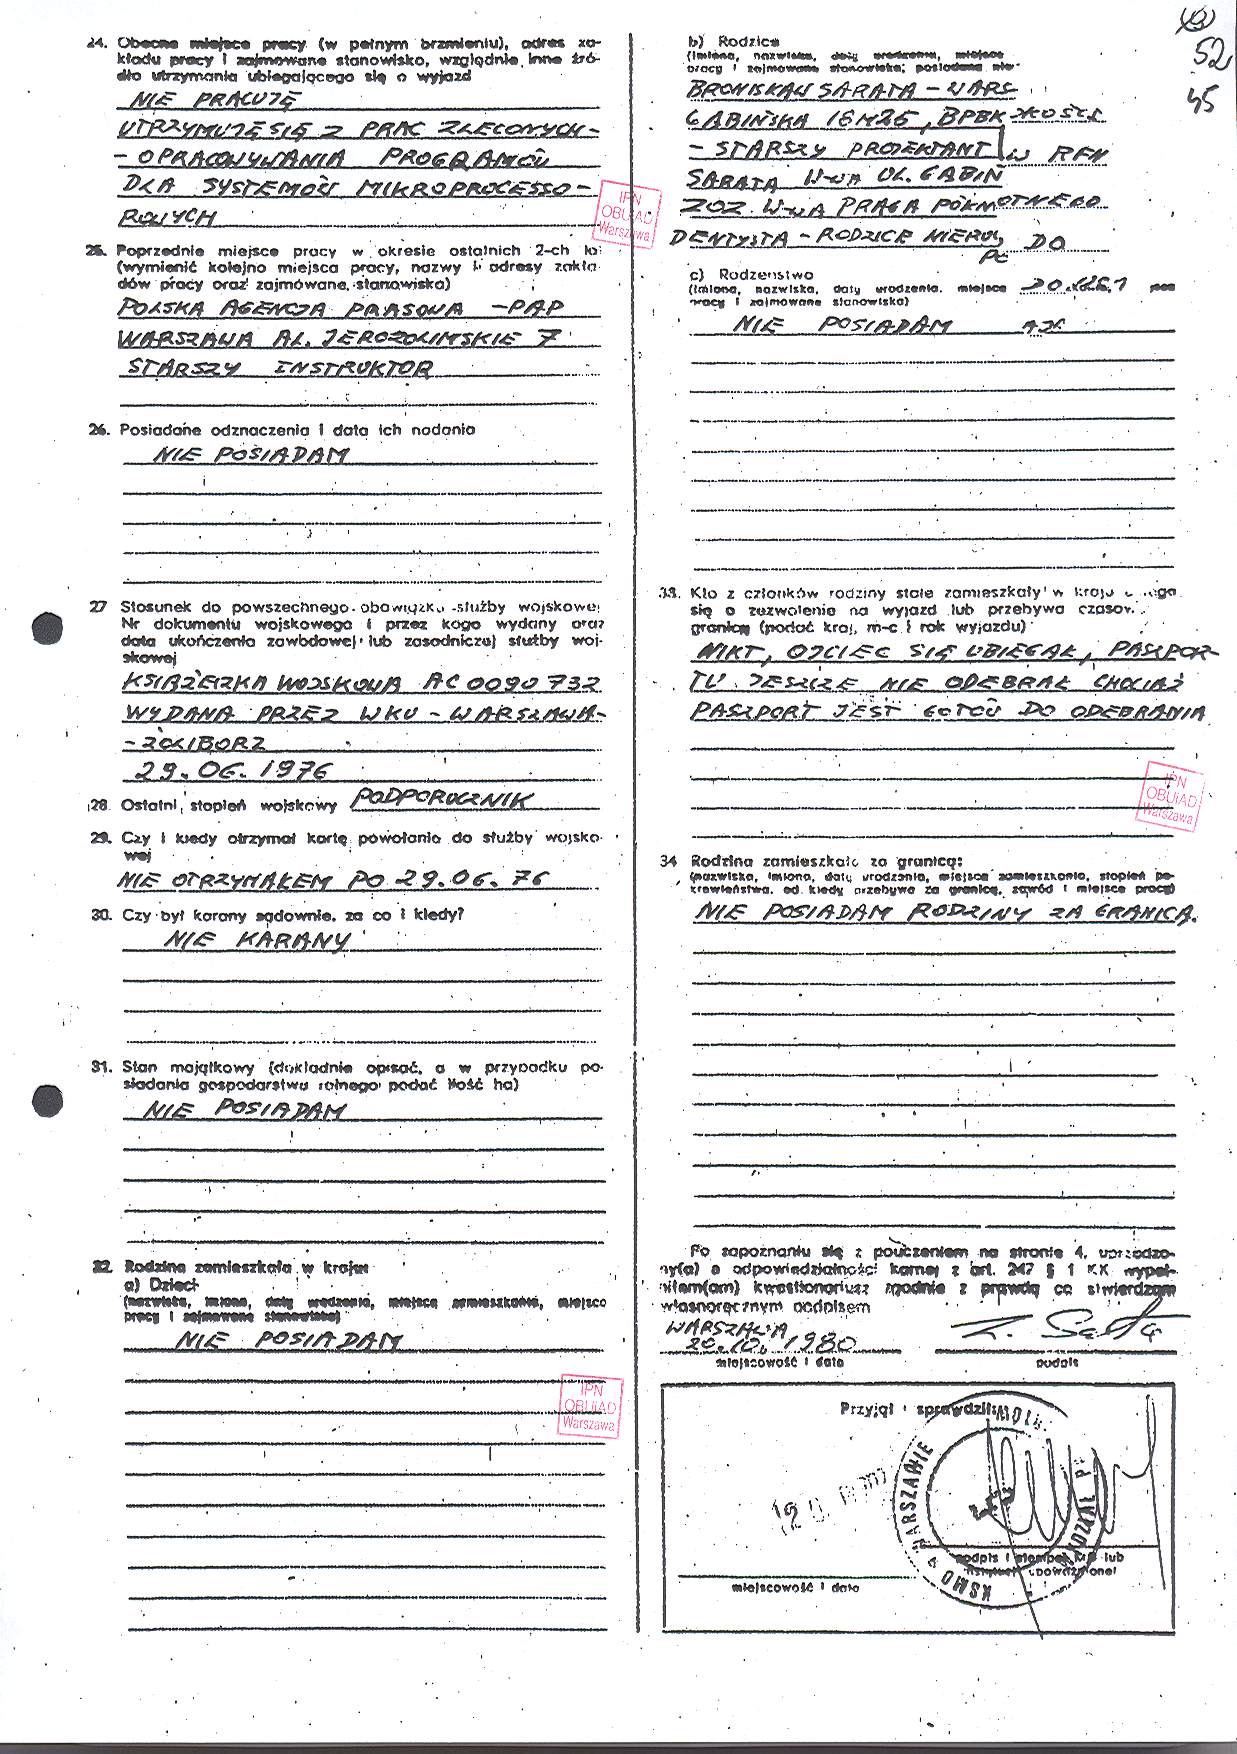 52
45
24. Obecne miejsce pracy (w pełnym brzmieniu), adres za-
kładu pracy i zajmowane stanowisko, względnie inne źró-
dło utrzymania ubiegającego się o wyjazd
NIE PRACUJĘ
UTRZYMUJĘ SIĘ Z PRAC ZLECONYCH-
- OPRACOWYWANIA PROGRAMÓW
DLA SYSTEMÓW MIKROPROCESSO-
ROWYCH
IPN
OBUiAD
Warszawa
25. Poprzednie miejsce pracy w okresie ostatnich 2-ch la
(wymienić kolejno miejsca pracy, nazwy i adresy zakła
dów pracy oraz zajmowane stanowiska)
POLSKA AGENCJA PRASOWA -PAP
WARSZAWA AL. JEROZOLIMSKIE 7
STARSZY INSTRUKTOR
26. Posiadane odznaczenia i data ich nadania
NIE POSIADAM
27 Stosunek do powszechnego obowiązku służby wojskowej
Nr dokumentu wojskowego i przez kogo wydany oraz
data ukończenia zawodowej lub zasadniczej służby woj-
skowej
KSIĄŻECZKA WOJSKOWA AC 0090732
WYDANA PRZEZ WKU - WARSZAWA-
- ŻOLIBORZ
29.06.1976
28. Ostatni stopień wojskowy PODPORUCZNIK
29. Czy i kiedy otrzymał kartę powołania do służby wojsko-
wej
NIE OTRZYMAŁEM PO 29.06.76
30. Czy był karany sądownie, za co i kiedy?
NIE KARANY
31. Stan majątkowy (dokładnie opisać, a w przypadku po-
siadania gospodarstwa rolnego podać ilość ha)
NIE POSIADAM
32. Rodzina zamieszkała w kraju:
a) Dzieci
(nazwiska, imiona, daty urodzenia, miejsce zamieszkania, miejsce
pracy i zajmowane stanowiska)
NIE POSIADAM
IPN
OBUiAD
Warszawa
b) Rodzice
(imiona, nazwiska, daty urodzenia, miejsce
pracy i zajmowane stanowiska; posiadane nie-
BRONISŁAW SARATA - WARS
GĄBIŃSKA 18M26, BPBK
- STARSZY PROJEKTANT W RFN
SARATA W-WA UL. GĄBIŃ
ZOZ W-WA PRAGA PÓŁNOTNEGO
DENTYSTA - RODZICE NIERU DO
c) Rodzeństwo
(imiona, nazwiska, daty urodzenia, miejsce
pracy i zajmowane stanowiska)
NIE POSIADAM
33. Kto z członków rodziny stale zamieszkały w kraju
się o zezwolenie na wyjazd lub przebywa czasow.
granicą (podać kraj, m-c i rok wyjazdu)
NIKT, OJCIEC SIĘ UBIEGAŁ, PASZPOR-
TU JESZCZE NIE ODEBRAŁ CHOCIAŻ
PASZPORT JEST GOTÓW DO ODEBRANIA
IPN
OBUiAD
Warszawa
34 Rodzina zamieszkała za granicą:
(nazwiska, imiona, daty urodzenia, miejsce zamieszkania, stopień po-
krewieństwa, od kiedy przebywa za granicą, zawód i miejsce pracy)
NIE POSIADAM RODZINY ZA GRANICĄ.
Po zapoznaniu się z pouczeniem na stronie 4, uprzedzo-
ny(a) o odpowiedzialności karnej z art. 247 § 1 KK wypeł-
niłem(am) kwestionariusz zgodnie z prawdą co stwierdzam
własnoręcznym podpisem
WARSZAWA
20.10.1980
miejscowość i data
podpis
Przyjął i sprawdził:
podpis i stempel MO lub
instytucji upoważnionej
miejscowość i data
KSMO w WARSZAWIE